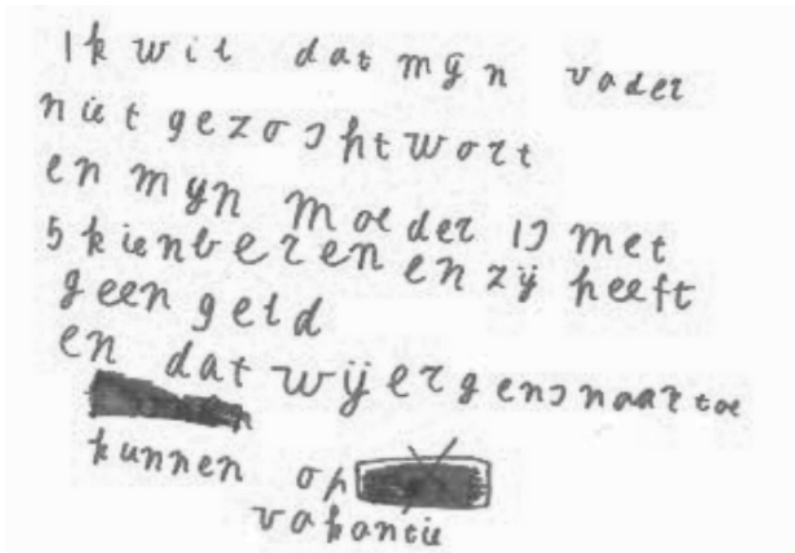 Ik wil dat mijn vader
niet gezoscht wort
en mijn moeder is met
5 kienberen en zij heeft
geen geld
en dat wij ergens naar toe
kunnen op
vakantie